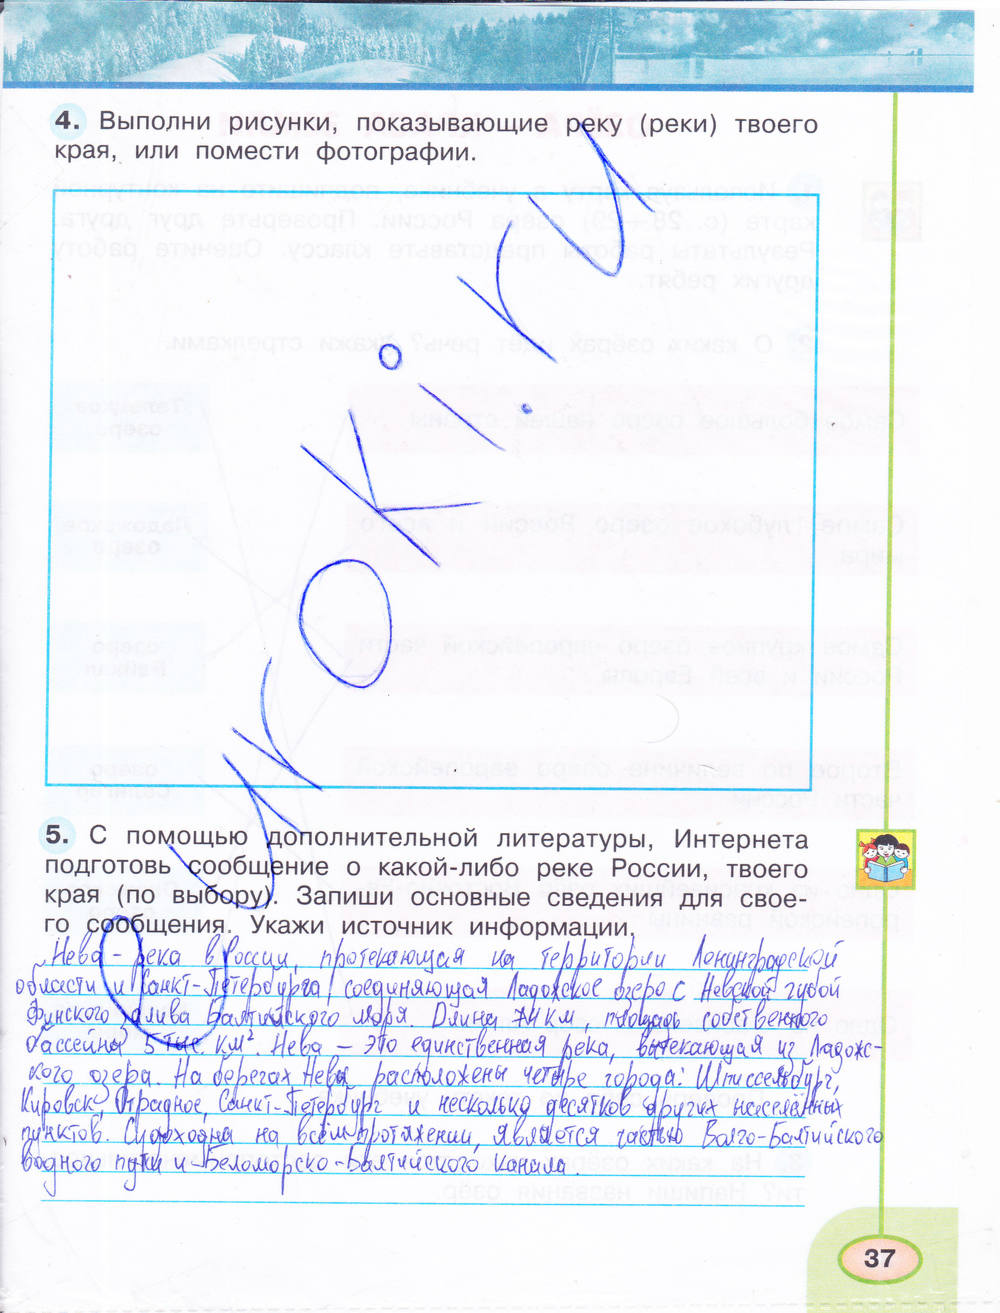 4. Выполни рисунки, показывающие реку (реки) твоего
края, или помести фотографии.
5. С помощью дополнительной литературы, Интернета
подготовь сообщение о какой-либо реке России, твоего
края (по выбору). Запиши основные сведения для свое-
го сообщения. Укажи источник информации.
Нева - река в России, протекающая на территории Ленинградской
области и Санкт-Петербурга, соединяющая Ладожское озеро с Невской губой
Финского залива Балтийского моря. Длина 74 км, площадь собственного
бассейна 5 тыс. км². Нева – это единственная река, вытекающая из Ладожс-
кого озера. На берегах Невы расположены четыре города: Шлиссельбург,
Кировск, Отрадное, Санкт-Петербург и несколько десятков других населённых
пунктов. Судоходна на всём протяжении, является частью Волго-Балтийского
водного пути и Беломорско-Балтийского канала.
37